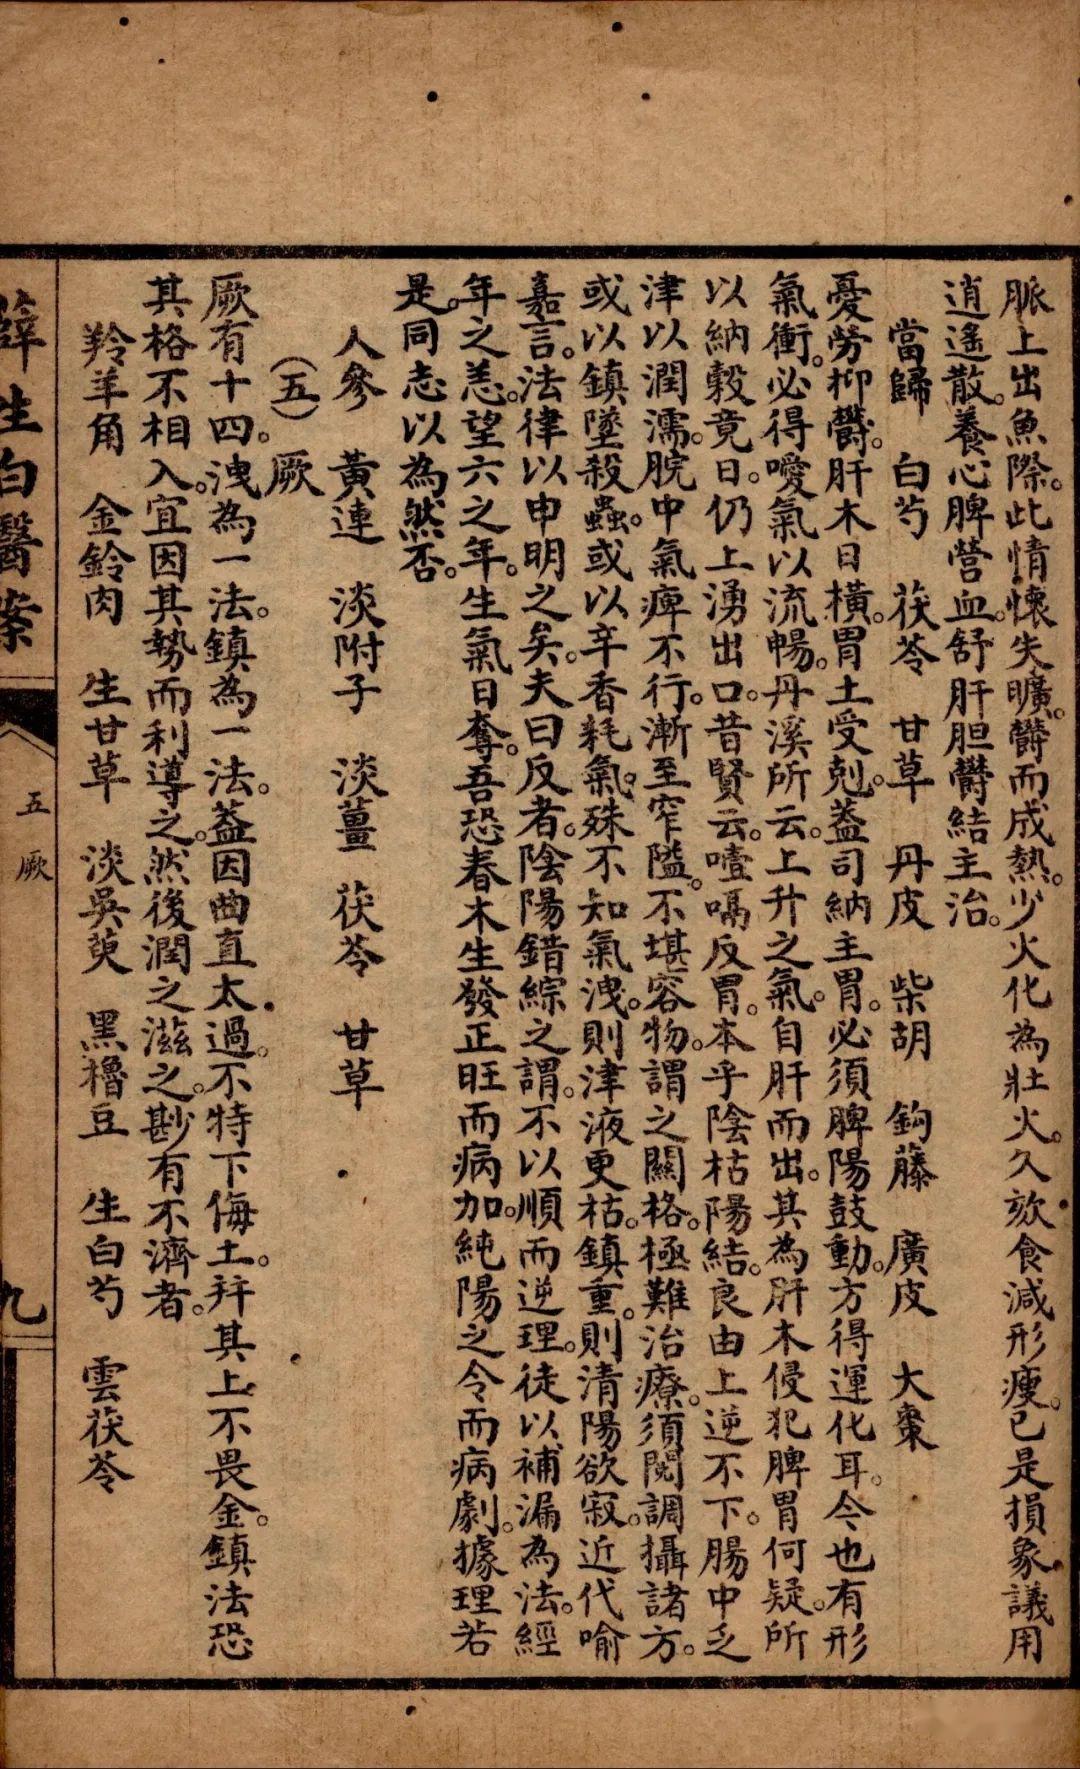 脈上出魚際。此情懷失曠。欝而成熱。少火化為壯火。久欬食減形瘦。已是損象議用
逍遙散。養心脾營血。舒肝胆欝結主治。
當歸 白芍 茯苓 甘草 丹皮 柴胡 鈎藤 廣皮 大棗
憂勞抑欝。肝木日橫。胃土受剋。葢司納主胃。必須脾陽鼓動。方得運化耳。今也有形
氣衝。必得噯氣以流暢。丹溪所云。上升之氣。自肝而出。其為肝木侵犯脾胃何疑。所
以納穀竟日。仍上湧出口。昔賢云。噎嗝反胃。本乎陰枯陽結。良由上逆不下。腸中乏
津以潤濡。脘中氣痺不行。漸至窄隘。不堪容物。謂之關格。極難治療。須閱調攝諸方。
或以鎮墜殺蟲。或以辛香耗氣。殊不知氣洩。則津液更枯。鎮重。則清陽欲寂。近代喻
嘉言。法律以申明之矣。夫曰反者。陰陽錯綜之謂。不以順而逆理。徒以補漏為法。經
年之恙。望六之年。生氣日奪。吾恐春木生發正旺而病加。純陽之令而病劇。據理若
是。同志以為然否。
人參 黃連 淡附子 淡薑 茯苓 甘草
（五）厥
厥有十四。洩為一法。鎮為一法。葢因曲直太過。不特下侮土。并其上不畏金。鎮法恐
其格不相入。宜因其勢而利導之。然後潤之滋之。尠有不濟者。
羚羊角 金鈴肉 生甘草 淡吳萸 黑櫓豆 生白芍 雲茯苓
薛生白醫案
五 厥
九